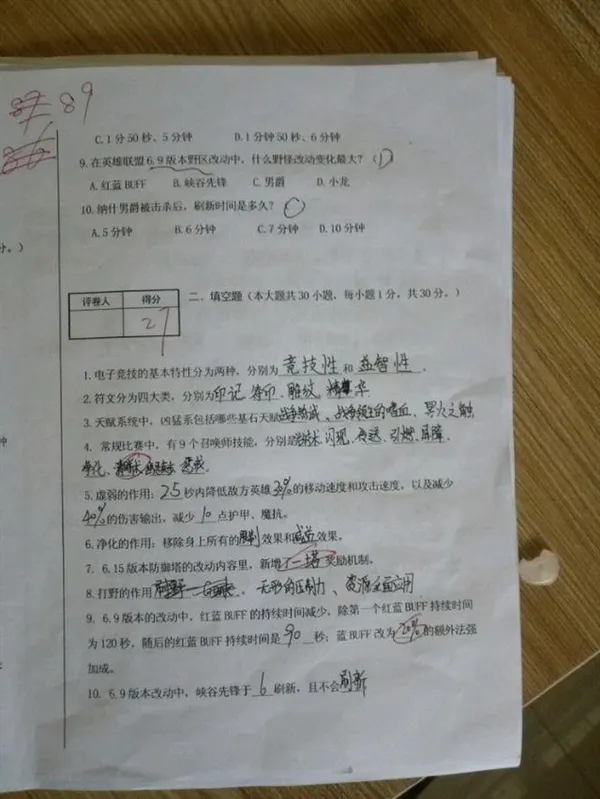 87 89
86
C.1分50秒、5分钟 D.1分50秒、6分钟
9.在英雄联盟6.9版本野区改动中，什么野怪改动变化最大？（D）
A.红蓝BUFF B.峡谷先锋 C.男爵 D.小龙
10.纳什男爵被击杀后，刷新时间是多久？
A.5分钟 B.6分钟 C.7分钟 D.10分钟
分。）
评卷人 得分
27
二、填空题（本大题共30小题，每小题1分，共30分。）
1.电子竞技的基本特性分为两种，分别为 竞技性 和 益智性 。
2.符文分为四大类，分别为印记、雕纹、精华
3.天赋系统中，凶猛系包括哪些基石天赋战争热诚、战争领主的嗜血、死火之触
4. 常规比赛中，有9个召唤师技能，分别是治疗术、闪现、传送、引燃、屏障、
净化、惩戒
5.虚弱的作用：2.5秒内降低敌方英雄30%的移动速度和攻击速度，以及减少
40%的伤害输出，减少10点护甲、魔抗。
6.净化的作用：移除身上所有的限制效果和减益效果。
7. 6.15版本防御塔的改动内容里，新增 一塔奖励机制。
8.打野的作用 无形的压制力、资源全面应用
9. 6.9版本的改动中，红蓝BUFF的持续时间减少，除第一个红蓝BUFF持续时间
为120秒，随后的红蓝BUFF持续时间是 90 秒；蓝BUFF改为20%的额外法强
加成。
10. 6.9版本改动中，峡谷先锋于 6 刷新，且不会刷新